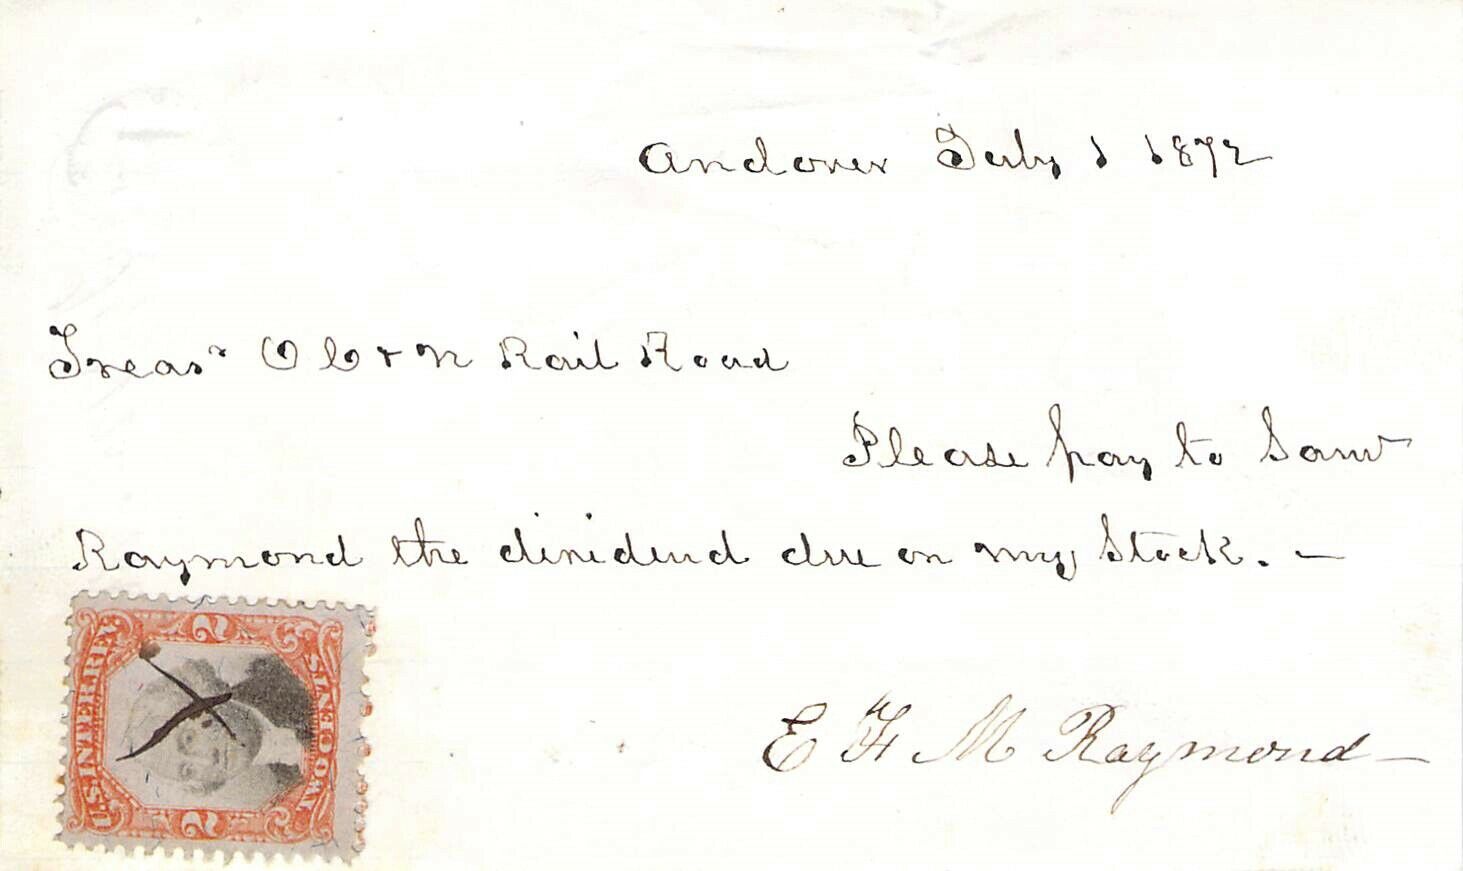 Andover July 1 1872
Treasr O C & N Rail Road
Please pay to Saml
Raymond the dividend due on my Stock. —
E F M Raymond —
U.S. INTER. REV.
2
TWO CENTS
2